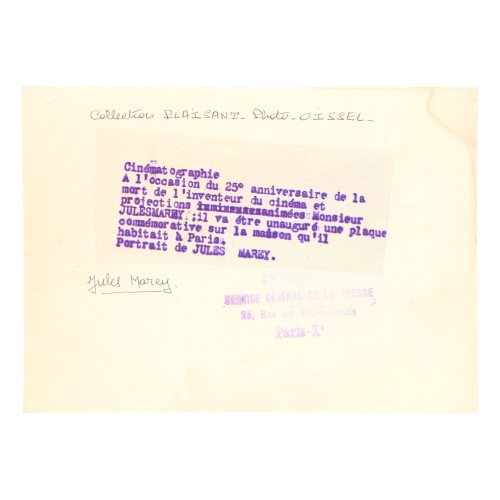 Collection PLAISANT - Photo - OISSEL -
Cinématographie
A l'occasion du 25° anniversaire de la
mort de l'inventeur du cinéma et
projections animées Monsieur
JULESMAREY ;il va étre unauguré une plaque
commémorative sur la maison qu'il
habitait à Paris.
Portrait de JULES MAREY.
Jules Marey.
SERVICE GÉNÉRAL DE LA PRESSE
25, Rue
Paris-Xe